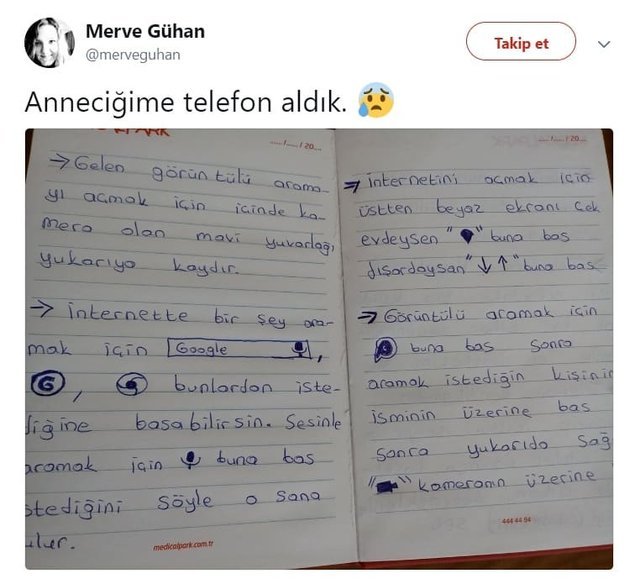 Merve Gühan
@merveguhan
Takip et
Anneciğime telefon aldık.
PARK
.../.../20...
→ Gelen görüntülü arama-
yı açmak için içinde ka-
mera olan mavi yuvarlağı
yukarıya kaydır.
→ İnternette bir şey ara-
mak için Google ,
G , bunlardan iste-
diğine basabilirsin. Sesinle
aramak için buna bas
istediğini söyle o sana
bulur.
medicalpark.com.tr
.../.../20...
→ İnternetini açmak için
üstten beyaz ekranı çek
evdeysen " " buna bas
dışardaysan "↓↑" buna bas
→ Görüntülü aramak için
buna bas sonra
aramak istediğin kişinin
isminin üzerine bas
sonra yukarıda sağ
" " kameranın üzerine
444 44 84